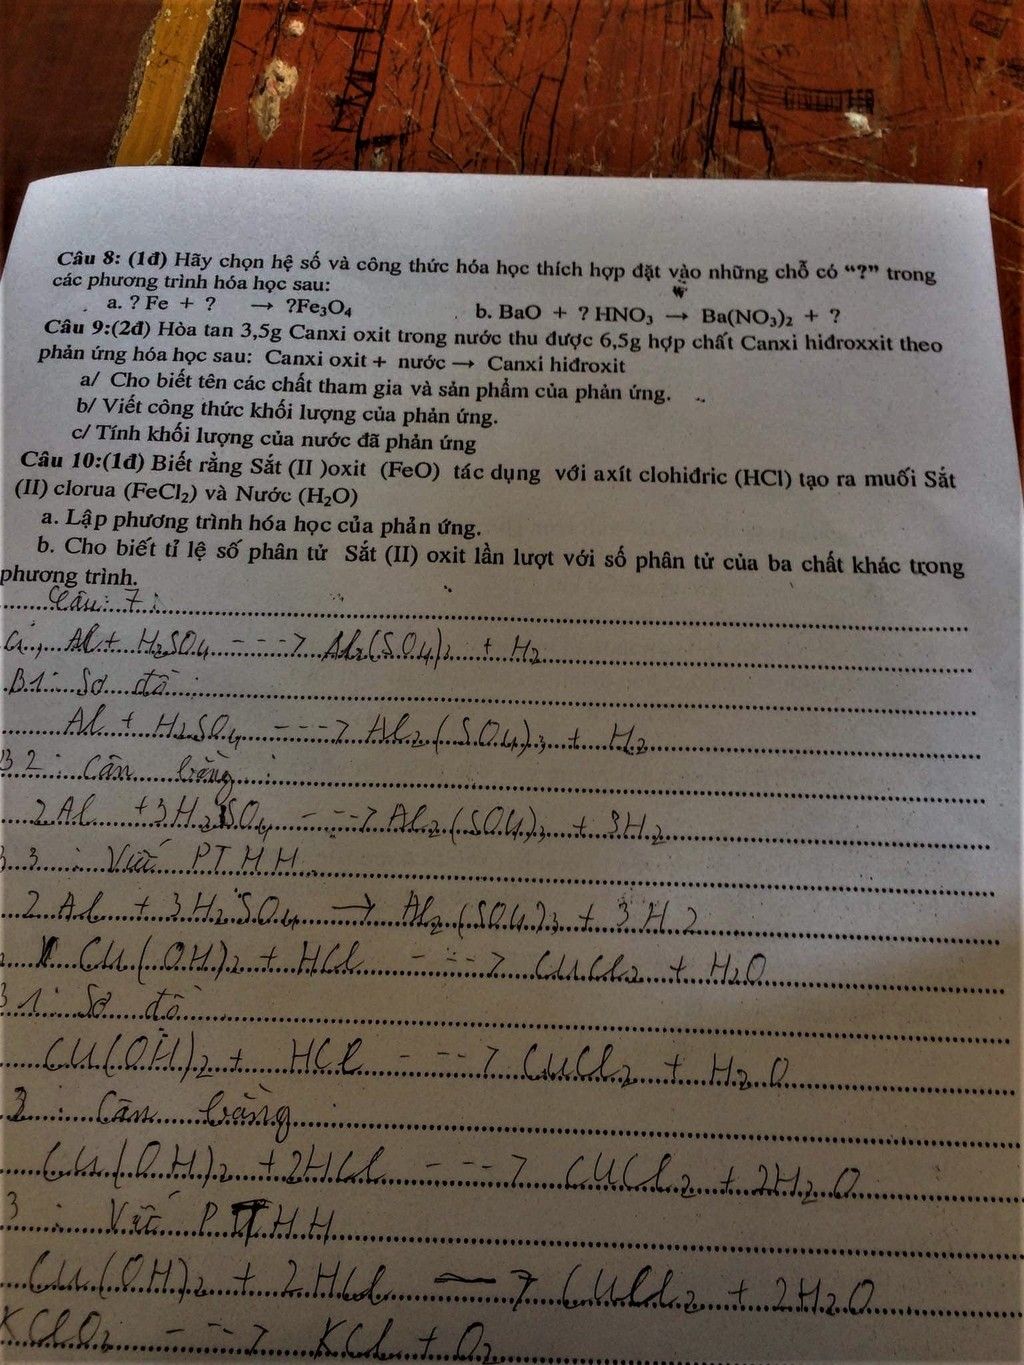 Câu 8: (1đ) Hãy chọn hệ số và công thức hóa học thích hợp đặt vào những chỗ có “?” trong
các phương trình hóa học sau:
a. ? Fe + ? → ?Fe₃O₄ b. BaO + ? HNO₃ → Ba(NO₃)₂ + ?
Câu 9:(2đ) Hòa tan 3,5g Canxi oxit trong nước thu được 6,5g hợp chất Canxi hiđroxxit theo
phản ứng hóa học sau: Canxi oxit + nước → Canxi hiđroxit
a/ Cho biết tên các chất tham gia và sản phẩm của phản ứng.
b/ Viết công thức khối lượng của phản ứng.
c/ Tính khối lượng của nước đã phản ứng
Câu 10:(1đ) Biết rằng Sắt (II )oxit (FeO) tác dụng với axít clohiđric (HCl) tạo ra muối Sắt
(II) clorua (FeCl₂) và Nước (H₂O)
a. Lập phương trình hóa học của phản ứng.
b. Cho biết tỉ lệ số phân tử Sắt (II) oxit lần lượt với số phân tử của ba chất khác trong
phương trình.
Câu 7:
Al + H₂SO₄ ----> Al₂(SO₄)₃ + H₂
B1: Sơ đồ:
Al + H₂SO₄ ----> Al₂(SO₄)₃ + H₂
B2: Cân bằng:
2Al + 3H₂SO₄ ----> Al₂(SO₄)₃ + 3H₂
3: Viết PTHH
2Al + 3H₂SO₄ → Al₂(SO₄)₃ + 3H2
Cu(OH)₂ + HCl ----> CuCl₂ + H₂O
B1: Sơ đồ
Cu(OH)₂ + HCl ----> CuCl₂ + H₂O
2: Cân bằng
Cu(OH)₂ + 2HCl ----> CuCl₂ + 2H₂O
3: Viết PTHH
Cu(OH)₂ + 2HCl → CuCl₂ + 2H₂O
KClO₃ ----> KCl + O₂